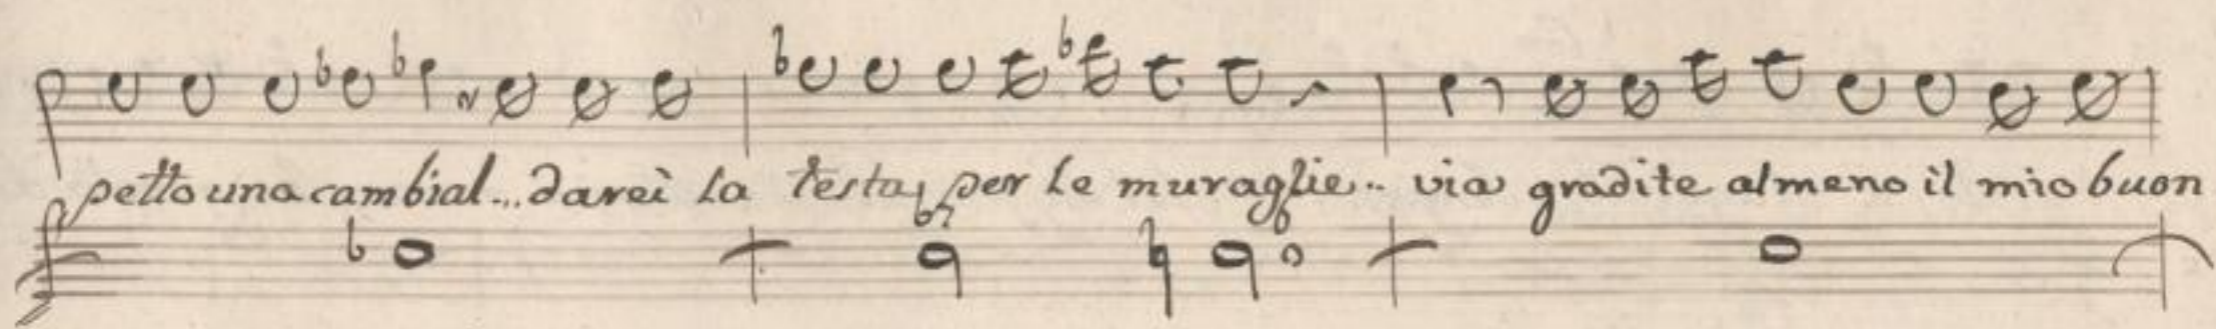 petto una cambial... darei la testa per le muraglie.. via gradite almeno il mio buon
b7 6